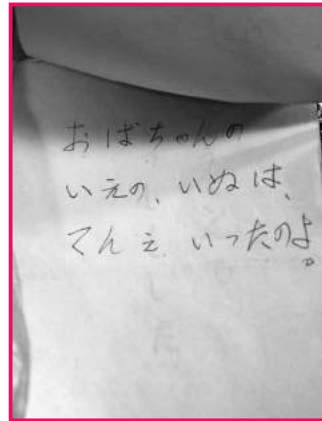 おばちゃんの
いえの、いぬは、
てんえ いったのよ。